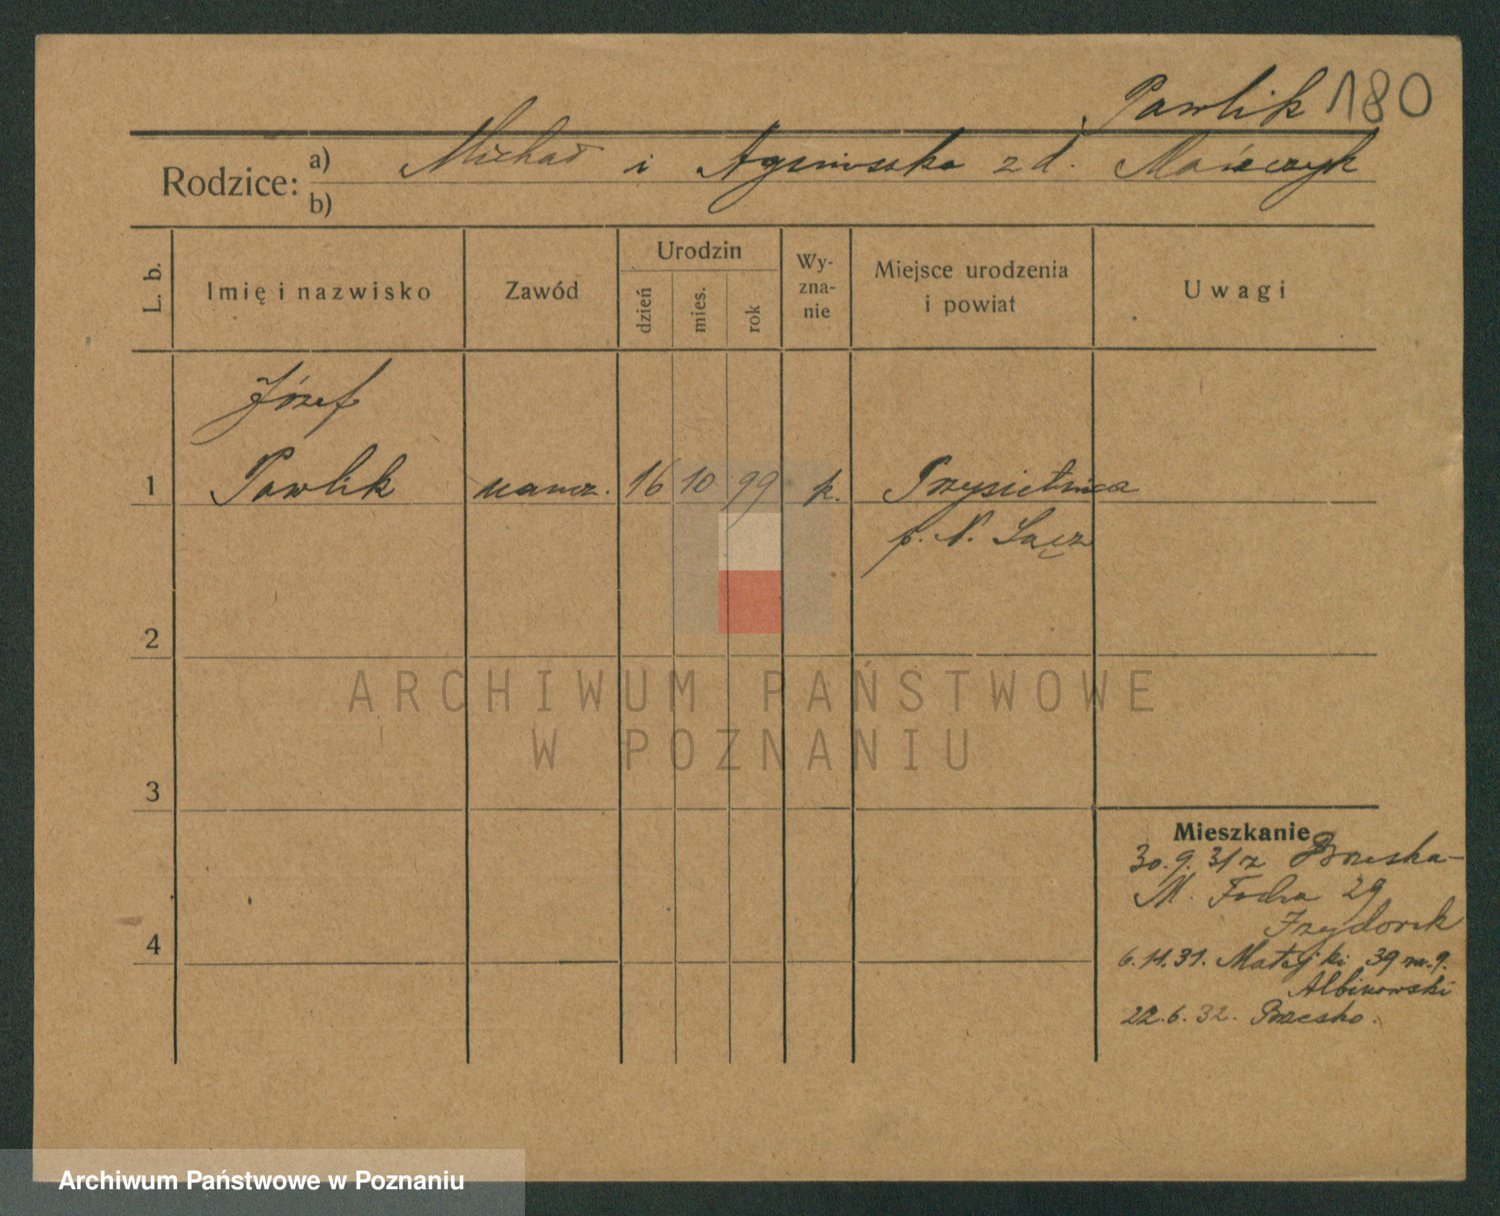 Pawlik 180
Rodzice: a) Michał i Agnieszka z d.
b)
L. b.
Imię i nazwisko
Zawód
Urodzin
dzień
mies.
rok
Wy-
zna-
nie
Miejsce urodzenia
i powiat
Uwagi
Józef
1 Pawlik naucz. 16 10 99 k. Przysietnica
p. N. Sącz
2
3
4
Mieszkanie
30.9.31 z Brzeska-
M. Focha 29
6.11.31. Matejki 39 m. 9.
Albinowski
22.6.32. Brzesko.
ARCHIWUM PAŃSTWOWE
W POZNANIU
Archiwum Państwowe w Poznaniu